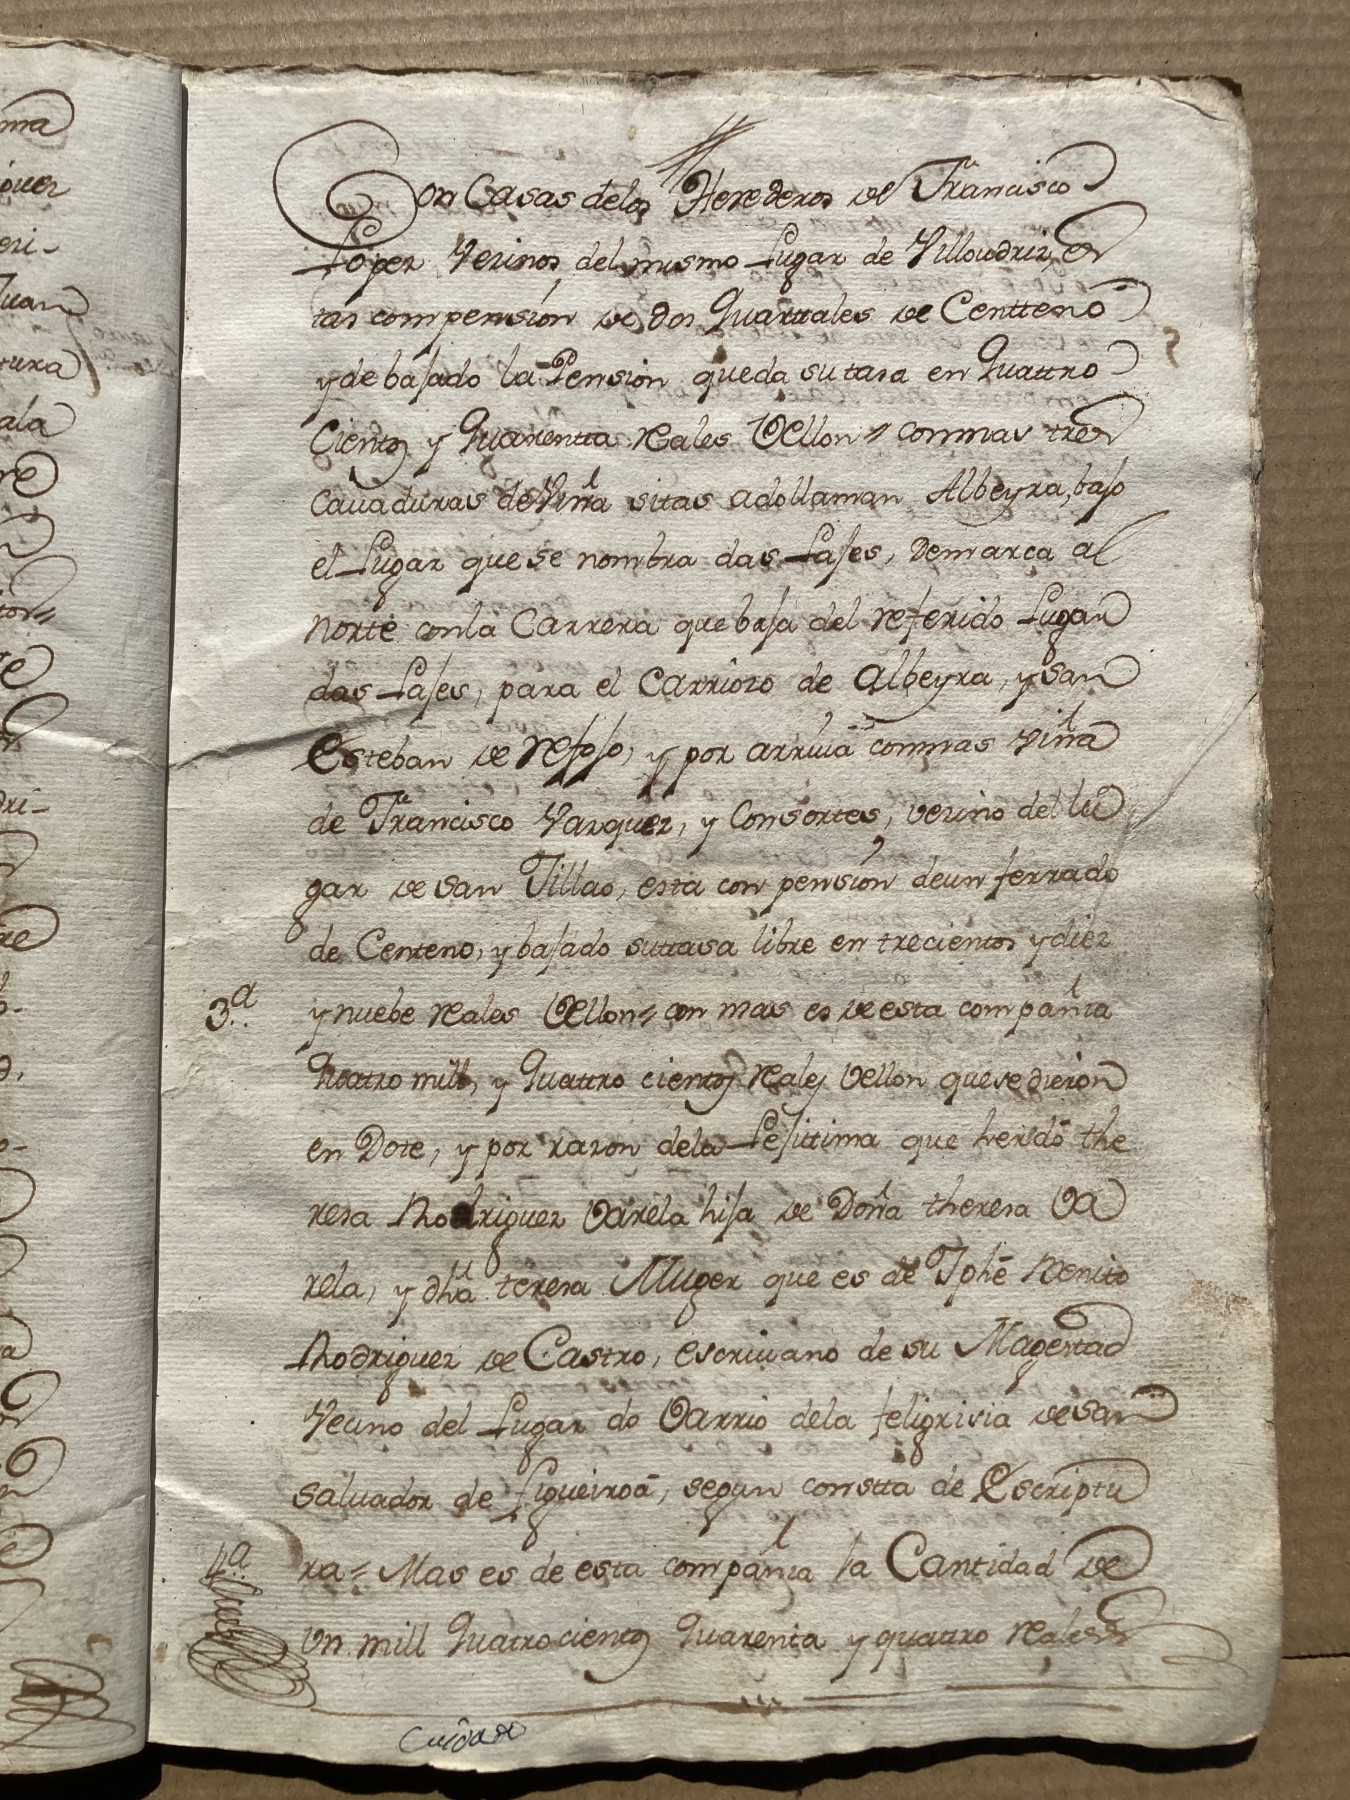 Con Casas delos Herederos de Francisco
Lopez Vecinos del mismo Lugar de Villoudriz, es
tas com pension de dos Quartales de Centteno
y de bajado la Pension queda su tasa en Quattro
Cientos y Quarentta Reales Vellon = con mas tres
Cauaduras de Viña sitas adollaman Albeyra, bajo
el Lugar que se nombra das Lajes, Demarca al
Norte conla Carrera que baja del referido Lugar
das Lajes, para el Carriozo de Albeyra, y san
Esteban de Refojo, y por arriua con mas Viña
de Francisco Vazquez, y Consortes, vecino del lu
gar de san Jillao, esta con pension deun ferrado
de Centeno, y bajado su ttasa libre en trecientos y diez
3.ª y nuebe Reales Vellon = con mas es de esta compañia
Quatro mill, y Quattro cientos Reales Vellon que se dieron
en Dote, y por razon dela Lejittima que heredó the
resa Rodriguez Varela hija de Doña theresa Va
rela, y dha teresa Muger que es de Jphé Benito
Rodriguez de Castro, escriuano de su Magestad
Vecino del Lugar do Varrio dela feligrisia de san
Saluador de Figueiroá, segun constta de Escriptu
4.ª ra = Mas es de esta compañia la Cantidad de
Un mill Quatrocientos Quarenta y quattro Reales